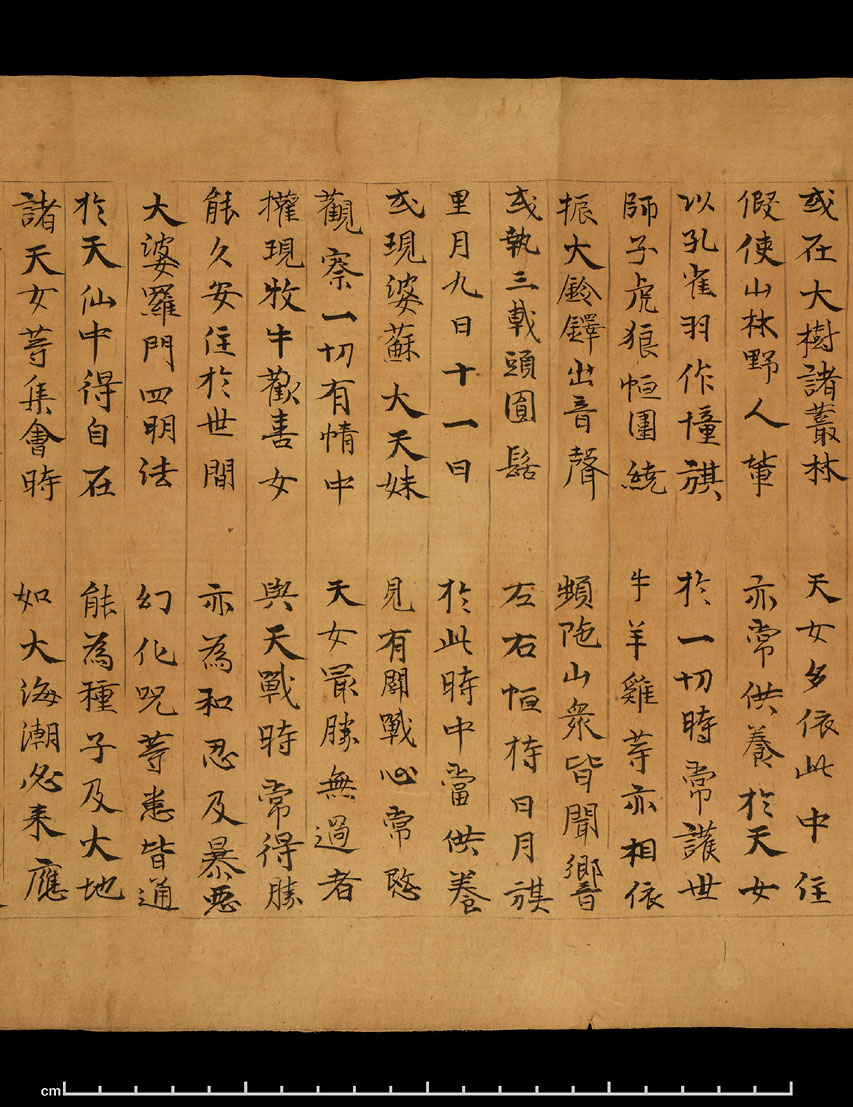 或在大樹諸叢林　天女多依此中住
假使山林野人軰　亦常供養於天女
以孔雀羽作橦旗　於一切時常護世
師子虎狼恒圍繞　牛羊雞等亦相依
振大鈴鐸出音聲　頻陁山衆皆聞響
或執三戟頭圓髻　左右恒持日月旗
里月九日十一日　於此時中當供養
或現婆蘇大天妹　見有鬪戰心常愍
觀察一切有情中　天女最勝無過者
權現牧牛歡喜女　與天戰時常得勝
能久安住於世間　亦為和忍及暴惡
大婆羅門四明法　幻化呪等悉皆通
於天仙中得自在　能為種子及大地
諸天女等集會時　如大海潮必来應
cm